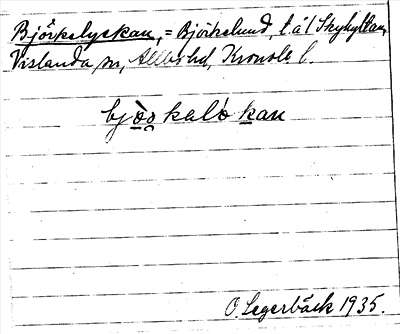 Björkelyckan, = Björkelund, t. å l Skyhyltan,
Vislanda sn, Allbo hd, Kronob l.
bjö̀rkaló kan
O. Legerbäck 1935.